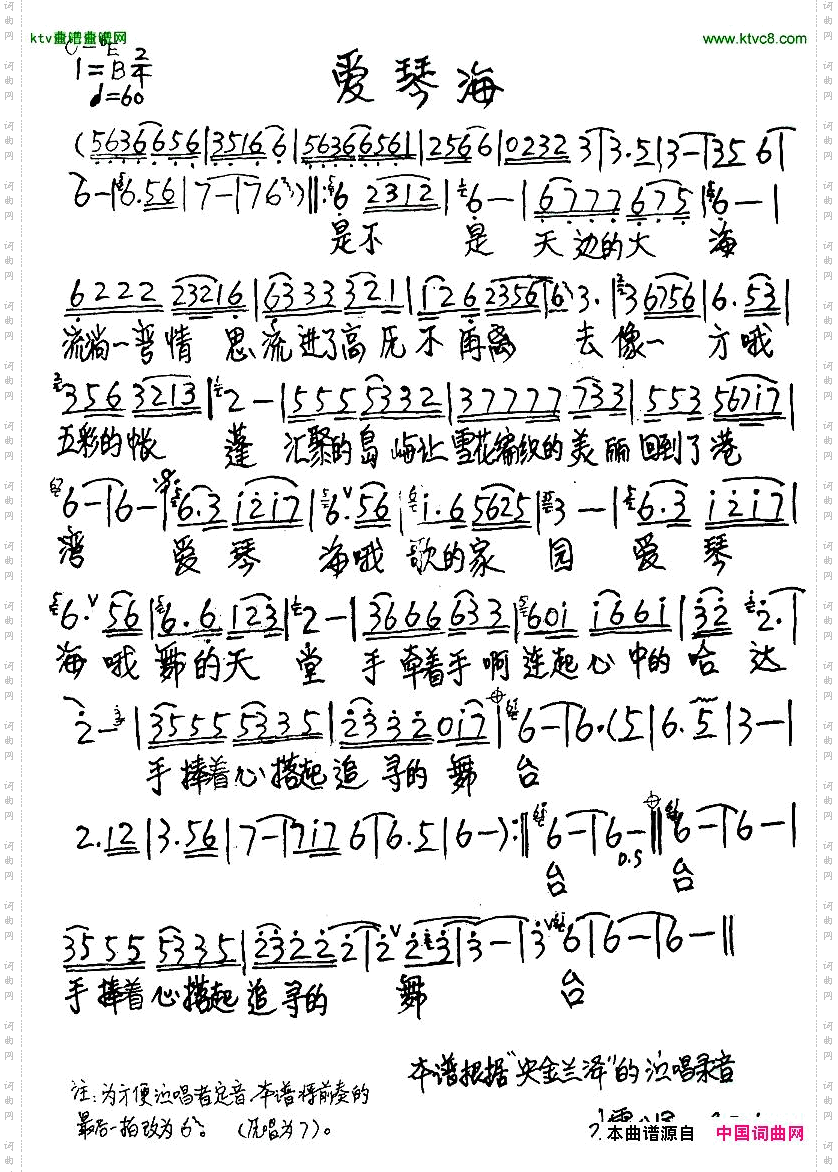 ktv曲谱曲谱网 www.ktvc8.com
1=B 2/4
♩=60
爱琴海
(5636 6656|3516 6|5636 6561|2566|0232 3|3.5|3-|35 6|
6-|6.56|7-|76)‖:6 2312|6-|6777 675|6-|
是不 是 天边的大 海
6222 23216|6333 3321|126 2356|6 3.|3 6756|6. 53|
流淌一弯情 思流进了高原不再离 去像一方哦
356 3213|2-|555 5332|37777 733|553 56717|
五彩的帐 蓬 汇聚的岛屿让雪花编织的美丽回到了港
6-|6-|6.3 1217|6. 56|1.6 5625|3-|6.3 1217|
湾 爱琴 海哦歌的家园 爱琴
6. 56|6.6 123|2-|3666 633|601 1661|32 2.|
海哦舞的天堂手牵着手啊连起心中的哈达
2-|3555 5335|2332 017|6-|6.(5|6.5|3-|
手捧着心搭起追寻的舞台
2.12|3.56|7-|717 6|6.5|6-):‖6-|6-‖6-|6-|
0.5
台 台
3555 5335|23222|2 23|3-|3 6|6-|6-‖
手捧着心搭起追寻的 舞 台
本谱根据"央金兰泽"的演唱录音
注:为方便演唱者定音,本谱将前奏的
最后一拍改为6。(原唱为7)。
本曲谱源自 中国词曲网